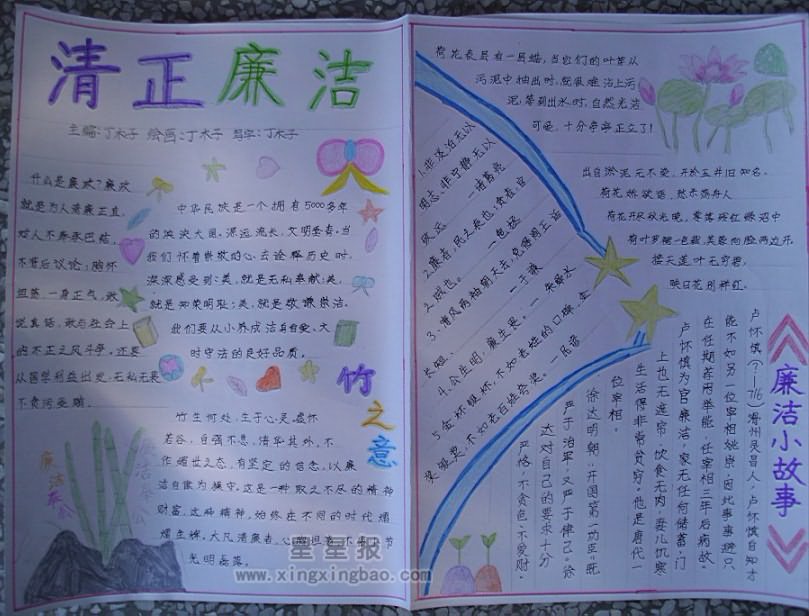 清正廉洁
主编:丁木子 绘画:丁木子 写字:丁木子
什么是廉洁?廉洁
就是为人清廉正直,
对人不奉承巴结,
不背后议论;胸怀
坦荡,一身正气,敢
说真话,敢与社会上
的不正之风斗争。还要
从国家利益出发,无私无畏
不贪污受贿。
中华民族是一个拥有5000多年
的泱泱大国,源远流长,文明圣者。当
我们怀着崇敬的心,去诠释历史时,
深深感受到:美,就是无私奉献;美,
就是知荣明耻;美,就是敬谦做洁。
我们要从小养成洁身自爱、大
时守法的良好品质。
竹之意
竹生何处,生于心灵,虚怀
若谷,自强不息,清华其外,不
作媚世之态,有坚定的信念,以廉
洁自律为操守,这是一种取之不尽的精神
财富,这种精神,始终在不同的时代熠
熠生辉。大凡清廉者,心胸坦荡,不
光明磊落。
廉洁
星星报
www.xingxingbao.com
荷花表层有一层蜡,当它们的叶芽从
污泥中抽出时,就很难沾上污
泥,等到出水时,自然光洁
可爱,十分亭亭正立了!
出自淤泥无不染,开于玉井旧知名。
荷花娇欲语,愁杀荡舟人
荷花开尽秋光晚,零落残红绿沼中
荷叶罗裙一色裁,芙蓉向脸两边开
接天莲叶无穷碧,
映日花别样红。
1.非淡泊无以
明志,非宁静无以
致远 一诸葛亮
2.廉者,民之表也;贪者,官
之贼也。 一包拯
3.清风两袖朝天去,免得阎王话
长短。 一于谦
4.公生明,廉生畏。 一朱舜水
5.金杯银杯,不如老姓的口碑,金
奖银奖,不如老百姓夸奖。一民谚
廉洁小故事
卢怀慎(?—716)滑州灵昌人,卢怀慎自知才
能不如另一位宰相姚崇,因此事事避只
在任期荐两举能,任宰相三年后病故。
卢怀慎为官廉洁,家无任何储蓄,门
上也无遮帘,饮食无肉,妻儿饥寒
生活得非常贫穷。他是唐代一
位宰相。
徐达明朝“开国第一功臣”既
严于治军,又严于律己,徐
达对自己的要求十分
严格,不贪色,不爱财。